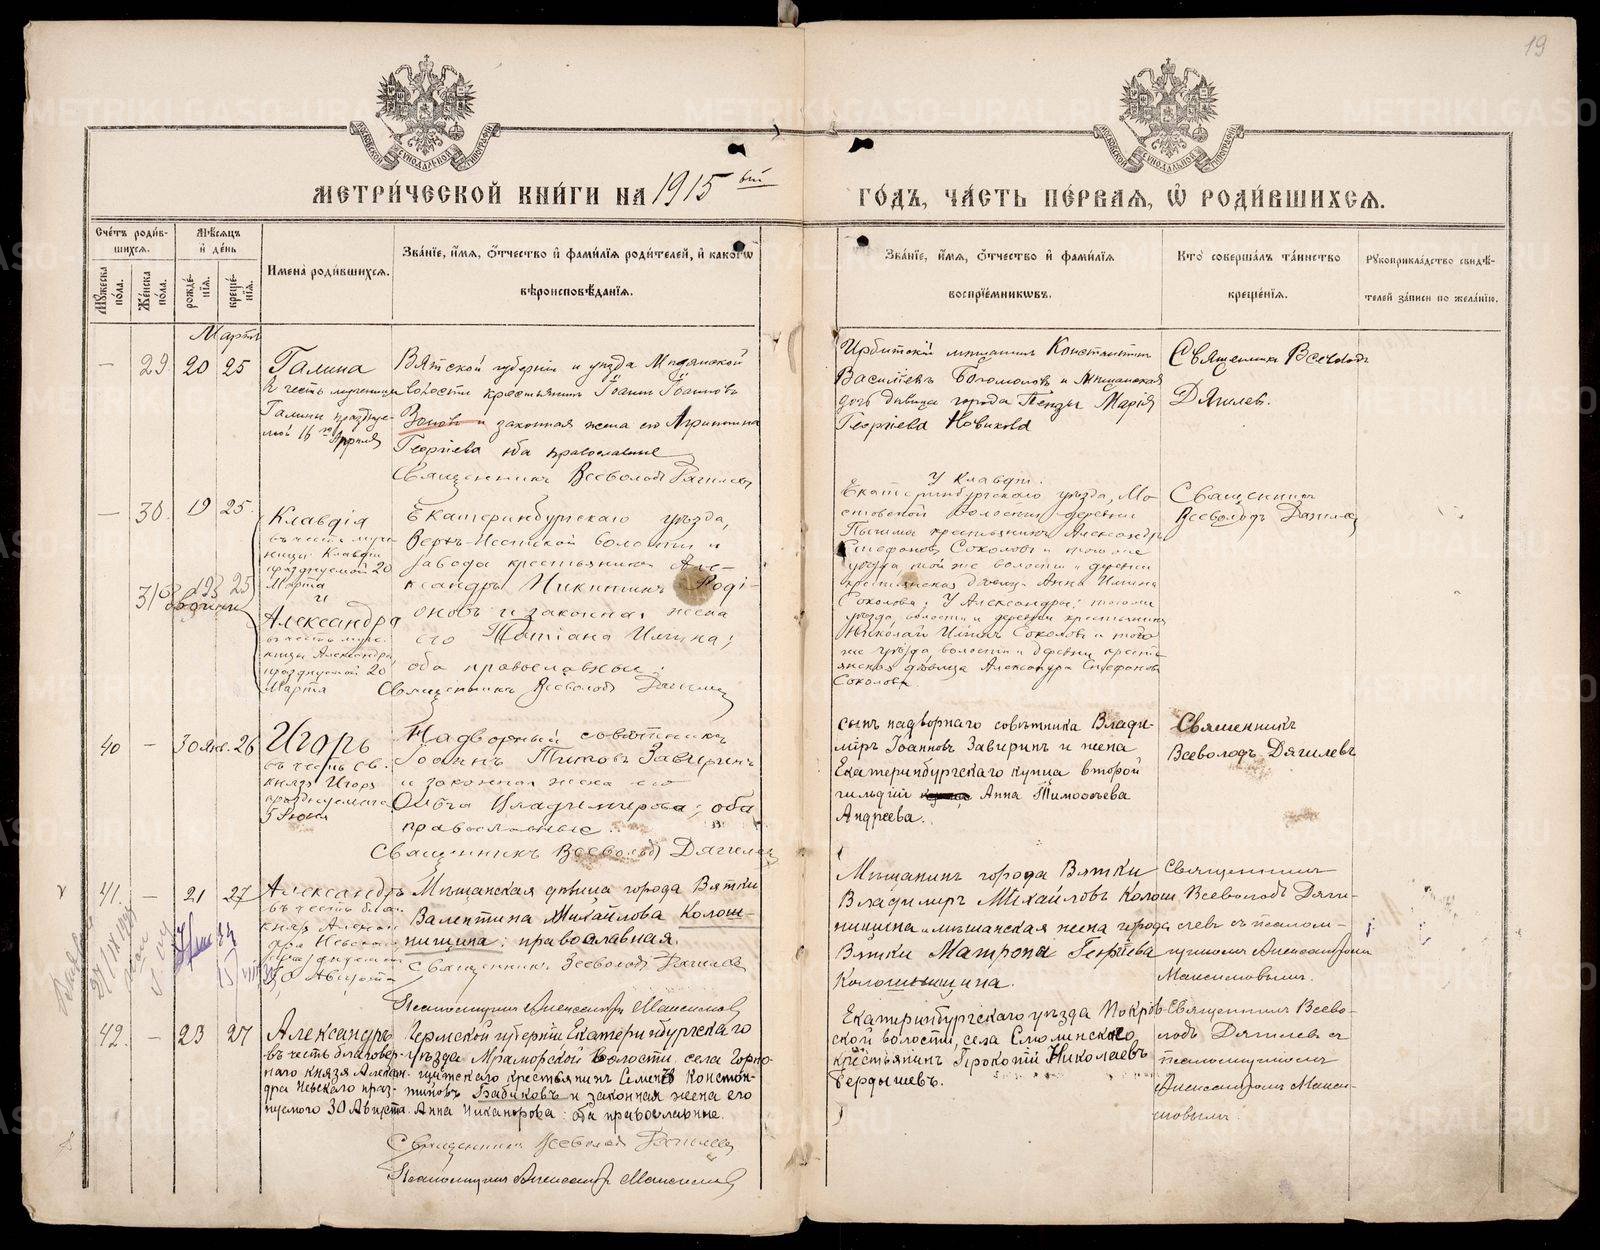 19
МЕТРИ́ЧЕСКОЙ КНИ́ГИ НА 1915 ый
ГО́ДЪ, ЧА́СТЬ ПЕ́РВАЯ, Ѡ҆ РОДИ́ВШИХСЯ.
Сче́тъ роди́вшихся.
Мѣ́сяцъ и҆ де́нь
Му́жеска по́ла.
Же́нска по́ла.
рожде́нїя.
креще́нїя.
Имена̀ роди́вшихся.
Зва́нїе, и҆́мя, ѻ҆́тчество и҆ фами́лїя роди́телей, и҆ како́гѡ
вѣроисповѣ́данїя.
Зва́нїе, и҆́мя, ѻ҆́тчество и҆ фами́лїя
воспрїе́мникѡвъ.
Кто̀ соверша́лъ та́инство
креще́нїя.
Рꙋкоприкла́дство свидѣ́-
телей за́писи по жела́нїю.
Мартъ
— 29 20 25
Галина
въ честь мученицы
Галины празднуе-
мой 16го Апрѣля
Вятской губерніи и уѣзда
волости крестьянинъ Іоаннъ Іоанновъ
и законная жена его Агрипина
Георгіева оба православные
Священникъ Всеволодъ Дягилевъ
Ирбитскій мѣщанинъ Константинъ
Васильевъ Богомоловъ и Мѣщанская
дочь дѣвица города Пензы Марія
Георгіева Новикова
Священникъ Всеволодъ
Дягилев.
— 30 19 25
31 19 25
Клавдія
въ честь муче-
ницы Клавдіи
празднуемой 20
Марта
и
Александра
въ честь муче-
ницы Александры
празднуемой 20
Марта
Екатеринбургскаго уѣзда,
Верхъ-Исетской волости и
завода крестьянинъ Але-
ксандръ Никитинъ Роді-
оновъ и законная жена
его Татіана Ильина;
оба православные.
Священникъ Всеволодъ Дягилевъ
У Клавдіи.
Екатеринбургскаго уѣзда, Мо-
стовской волости деревни
Пышмы крестьянинъ Александръ
Стефановъ Соколовъ и того же
уѣзда той же волости и деревни
крестьянская дѣвица Анна Ильина
Соколова; У Александры: того же
уѣзда, волости и деревни крестьянинъ
Николай Ильинъ Соколовъ и того
же уѣзда волости и деревни кресть-
янская дѣвица Александра Стефанова
Соколова.
Священникъ
Всеволодъ Дягилевъ
40 — 30 Янв. 26
Игорь
въ честь св.
князя Игоря
празднуемаго
5 Іюня
Надворный совѣтникъ
Іоаннъ Титовъ Завиринъ
и законная жена его
Ольга Владимирова; оба
православные.
Священникъ Всеволодъ Дягилевъ
сынъ надворнаго совѣтника Влади-
міръ Іоанновъ Завиринъ и жена
Екатеринбургскаго купца второй
гильдіи Анна Тимоѳеева
Андреева.
Священникъ
Всеволодъ Дягилевъ
41 — 21 27
Александръ
въ честь благ.
князя Алексан-
дра Невскаго
празднуемаго
30 Августа
Мѣщанская дѣвица города Вятки
Валентина Михайлова Колош-
ницина; православная.
Священникъ Всеволодъ Дягилевъ
Псаломщикъ Александръ Максимовъ
Мѣщанинъ города Вятки
Владимиръ Михайловъ Колош-
ницинъ и мѣщанская жена города
Вятки Матрона Георгіева
Колошницина.
Священникъ
Всеволодъ Дяги-
левъ съ псалом-
щикомъ Александромъ
Максимовымъ.
42 — 23 27
Александръ
въ честь благовер-
наго князя Алексан-
дра Невскаго праз-
нуемого 30 Августа
Пермской губерніи Екатеринбургскаго
уѣзда Мраморской волости села Горно-
щитскаго крестьянинъ Семенъ Констан-
тиновъ Бабиковъ и законная жена его
Анна Никанорова: оба православные.
Священникъ Всеволодъ Дягилевъ
Псаломщикъ Александръ Максимовъ
Екатеринбургскаго уѣзда Покров-
ской волости, села
крестьянинъ Прокопій Николаевъ
Бердышевъ.
Священникъ Всево-
лодъ Дягилевъ съ
псаломщикомъ
Александромъ Макси-
мовымъ.
METRIKI.GASO-URAL.RU